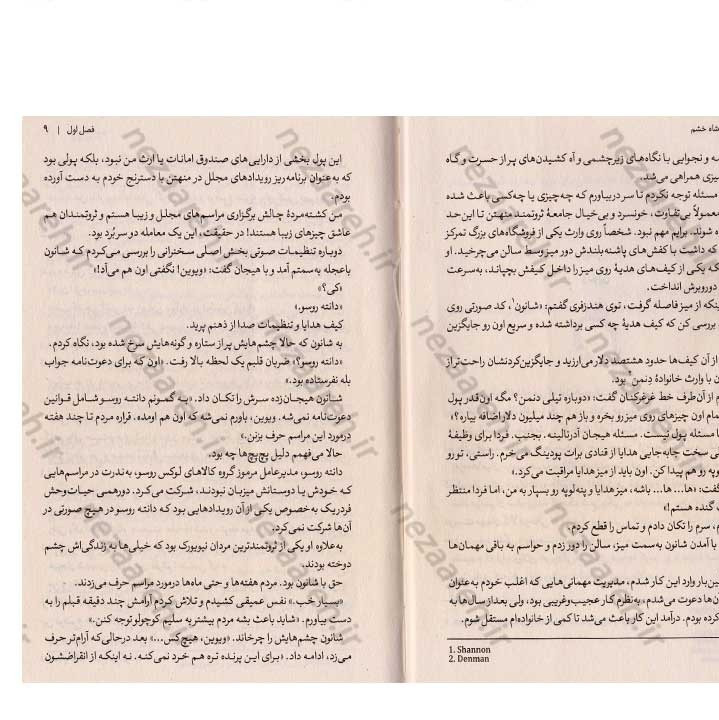 شاه خشم
ه و نجوایی با نگاه‌های زیرچشمی و آه کشیدن‌های پر از حسرت و گاه
یزی همراهی می‌شد.
مسئله توجه نکردم تا سر دربیاورم که چه‌چیزی یا چه‌کسی باعث شده
معمولاً بی‌تفاوت، خونسرد و بی‌خیال جامعهٔ ثروتمند منهتن تا این حد
ه شوند. برایم مهم نبود. شخصاً روی وارث یکی از فروشگاه‌های بزرگ تمرکز
که داشت با کفش‌های پاشنه‌بلندش دور میز وسط سالن می‌چرخید. او
که یکی از کیف‌های هدیهٔ روی میز را داخل کیفش بچپاند، به‌سرعت
دوروبرش انداخت.
ینکه از میز فاصله گرفت، توی هندزفری گفتم: «شانون¹، کد صورتی روی
بررسی کن که کیف هدیهٔ چه کسی برداشته شده و سریع اون رو جایگزین
از آن کیف‌ها حدود هشتصد دلار می‌ارزید و جایگزین‌کردنشان راحت‌تر از
ن با وارث خانوادهٔ دنمن² بود.
م از آن‌طرف خط غرغرکنان گفت: «دوباره تیلی دنمن؟ مگه اون‌قدر پول
مام اون چیزهای روی میز رو بخره و باز هم چند میلیون دلار اضافه بیاره؟»
ا مسئله پول نیست. مسئله هیجان آدرنالینه. بجنب. فردا برای وظیفهٔ
ی سخت جابه‌جایی هدایا از قنادی برات پودینگ می‌خرم. راستی، تو رو
وپه رو هم پیدا کن. اون باید از میز هدایا مراقبت می‌کرد.»
گفت: «ها... ها... باشه، میز هدایا و پنه‌لوپه رو بسپار به من، اما فردا منتظر
گنده هستم!»
م، سرم را تکان دادم و تماس را قطع کردم.
با آمدن شانون به‌سمت میز، سالن را دور زدم و حواسم به باقی مهمان‌ها
ین‌بار وارد این کار شدم، مدیریت مهمانی‌هایی که اغلب خودم به‌عنوان
ن‌ها دعوت می‌شدم، به‌نظرم کار عجیب‌وغریبی بود، ولی بعد از سال‌ها به
کرده بودم. درآمد این کار باعث می‌شد تا کمی از خانواده‌ام مستقل شوم.
1. Shannon
2. Denman
فصل اول | ۹
این پول بخشی از دارایی‌های صندوق امانات یا ارث من نبود، بلکه پولی بود
که به‌عنوان برنامه‌ریز رویدادهای مجلل در منهتن با دسترنج خودم به دست آورده
بودم.
من کشته‌مردهٔ چالش برگزاری مراسم‌های مجلل و زیبا هستم و ثروتمندان هم
عاشق چیزهای زیبا هستند! در حقیقت، این یک معامله دو سر بُرد بود.
دوباره تنظیمات صوتی بخش اصلی سخنرانی را بررسی می‌کردم که شانون
باعجله به‌سمتم آمد و با هیجان گفت: «ویوین! نگفتی اون هم می‌آد!»
«کی؟»
«دانته روسو.»
کیف هدایا و تنظیمات صدا از ذهنم پرید.
به شانون که حالا چشم‌هایش پر از ستاره و گونه‌هایش سرخ شده بود، نگاه کردم.
«دانته روسو؟» ضربان قلبم یک لحظه بالا رفت. «اون که برای دعوت‌نامه جواب
بله نفرستاده بود.»
شانون هیجان‌زده سرش را تکان داد. «به گمونم دانته روسو شامل قوانین
دعوت‌نامه نمی‌شه. ویوین، باورم نمی‌شه که اون هم اومده. قراره مردم تا چند هفته
درمورد این مراسم حرف بزنن.»
حالا می‌فهمم دلیل پچ‌پچ‌ها چه بود.
دانته روسو، مدیرعامل مرموز گروه کالاهای لوکس روسو، به‌ندرت در مراسم‌هایی
که خودش یا دوستانش میزبان نبودند، شرکت می‌کرد. دورهمی حیات‌وحش
فردریک به‌خصوص یکی از آن رویدادهایی بود که دانته روسو در هیچ صورتی در
آن‌ها شرکت نمی‌کرد.
به‌علاوه او یکی از ثروتمندترین مردان نیویورک بود که خیلی‌ها به زندگی‌اش چشم
دوخته بودند.
حق با شانون بود. مردم هفته‌ها و حتی ماه‌ها درمورد مراسم حرف می‌زدند.
«بسیار خب.» نفس عمیقی کشیدم و تلاش کردم آرامش چند دقیقه قبلم را به
دست بیاورم. «شاید باعث بشه مردم بیشتر به سلیم کوچولو توجه کنن.»
شانون چشم‌هایش را چرخاند. «ویوین، هیچ‌کس...» بعد درحالی‌که آرام‌تر حرف
می‌زد، ادامه داد. «برای این پرنده تره هم خرد نمی‌کنه. نه اینکه از انقراضشون